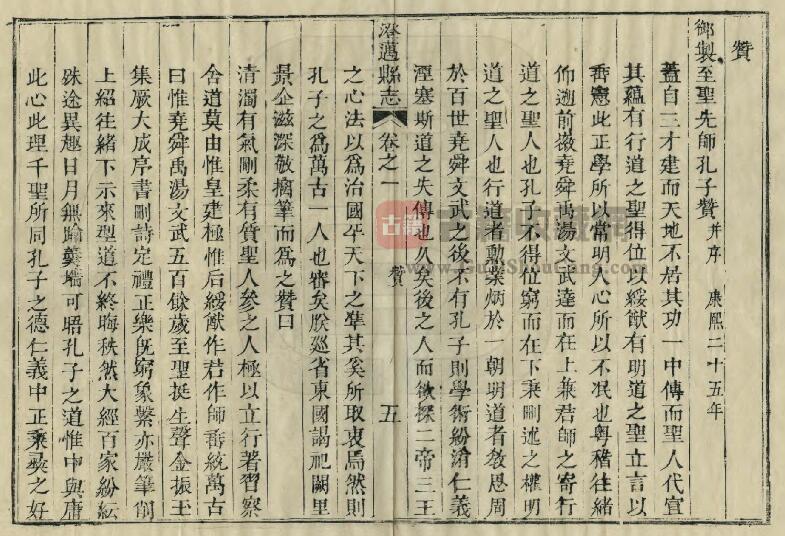 贊
御製至聖先師孔子贊 并序 康熙二十五年
蓋自三才建而天地不居其功一中傳而聖人代宣
其蘊有行道之聖得位以綏猷有明道之聖立言以
垂憲此正學所以常明人心所以不泯也粵稽往緒
仰遡前徽堯舜禹湯文武達而在上兼君師之寄行
道之聖人也孔子不得位窮而在下秉刪述之權明
道之聖人也行道者勲業炳於一朝明道者敎思周
於百世堯舜文武之後不有孔子則學術紛淆仁義
湮塞斯道之失傳也久矣後之人而欲探二帝三王
澄邁縣志 卷之一 贊 五
之心法以爲治國平天下之準其奚所取衷焉然則
孔子之爲萬古一人也審矣朕巡省東國謁祀闕里
景企滋深敬摛筆而爲之贊曰
清濁有氣剛柔有質聖人參之人極以立行著習察
舍道莫由惟皇建極惟后綏猷作君作師垂統萬古
曰惟堯舜禹湯文武五百餘歲至聖挺生聲金振玉
集厥大成序書刪詩定禮正樂旣窮象繫亦嚴筆削
上紹往緒下示來型道不終晦秩然大經百家紛紜
殊途異趣日月無踰羹墻可晤孔子之道惟中與庸
此心此理千聖所同孔子之德仁義中正秉彝之好
古籍
GujiShouCang.com